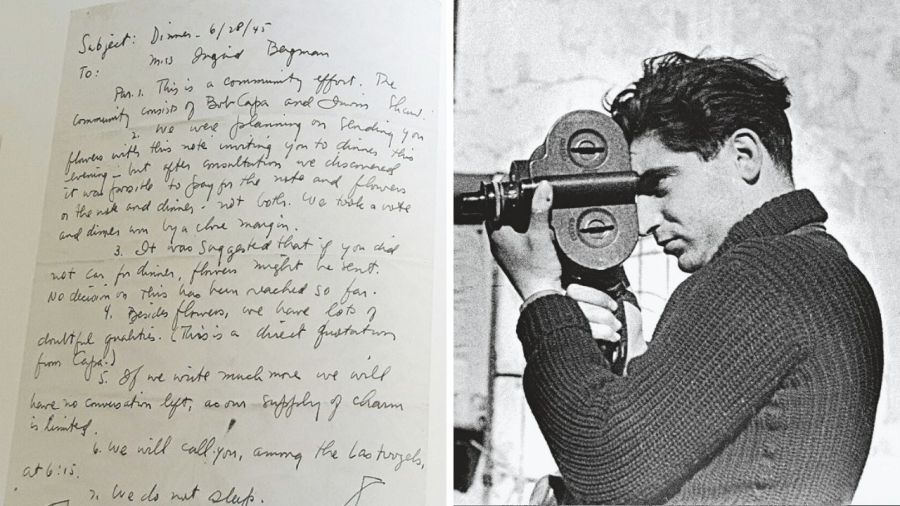 Subject: Dinner - 6/28/45
To: Miss Ingrid Bergman
Par. 1. This is a community effort. The
community consists of Bob Capa and Irwin Shaw.
2. We were planning on sending you
flowers with this note inviting you to dinner this
evening - but after consultation we discovered
it was possible to pay for the note and flowers
or the note and dinner - not both. We took a vote
and dinner won by a close margin.
3. It was suggested that if you did
not care for dinner, flowers might be sent.
No decision on this has been reached so far.
4. Besides flowers, we have lots of
doubtful qualities. (This is a direct quotation
from Capa.)
5. If we write much more we will
have no conversation left, as our supply of charm
is limited.
6. We will call you, among the
at 6:15.
7. We do not sleep.